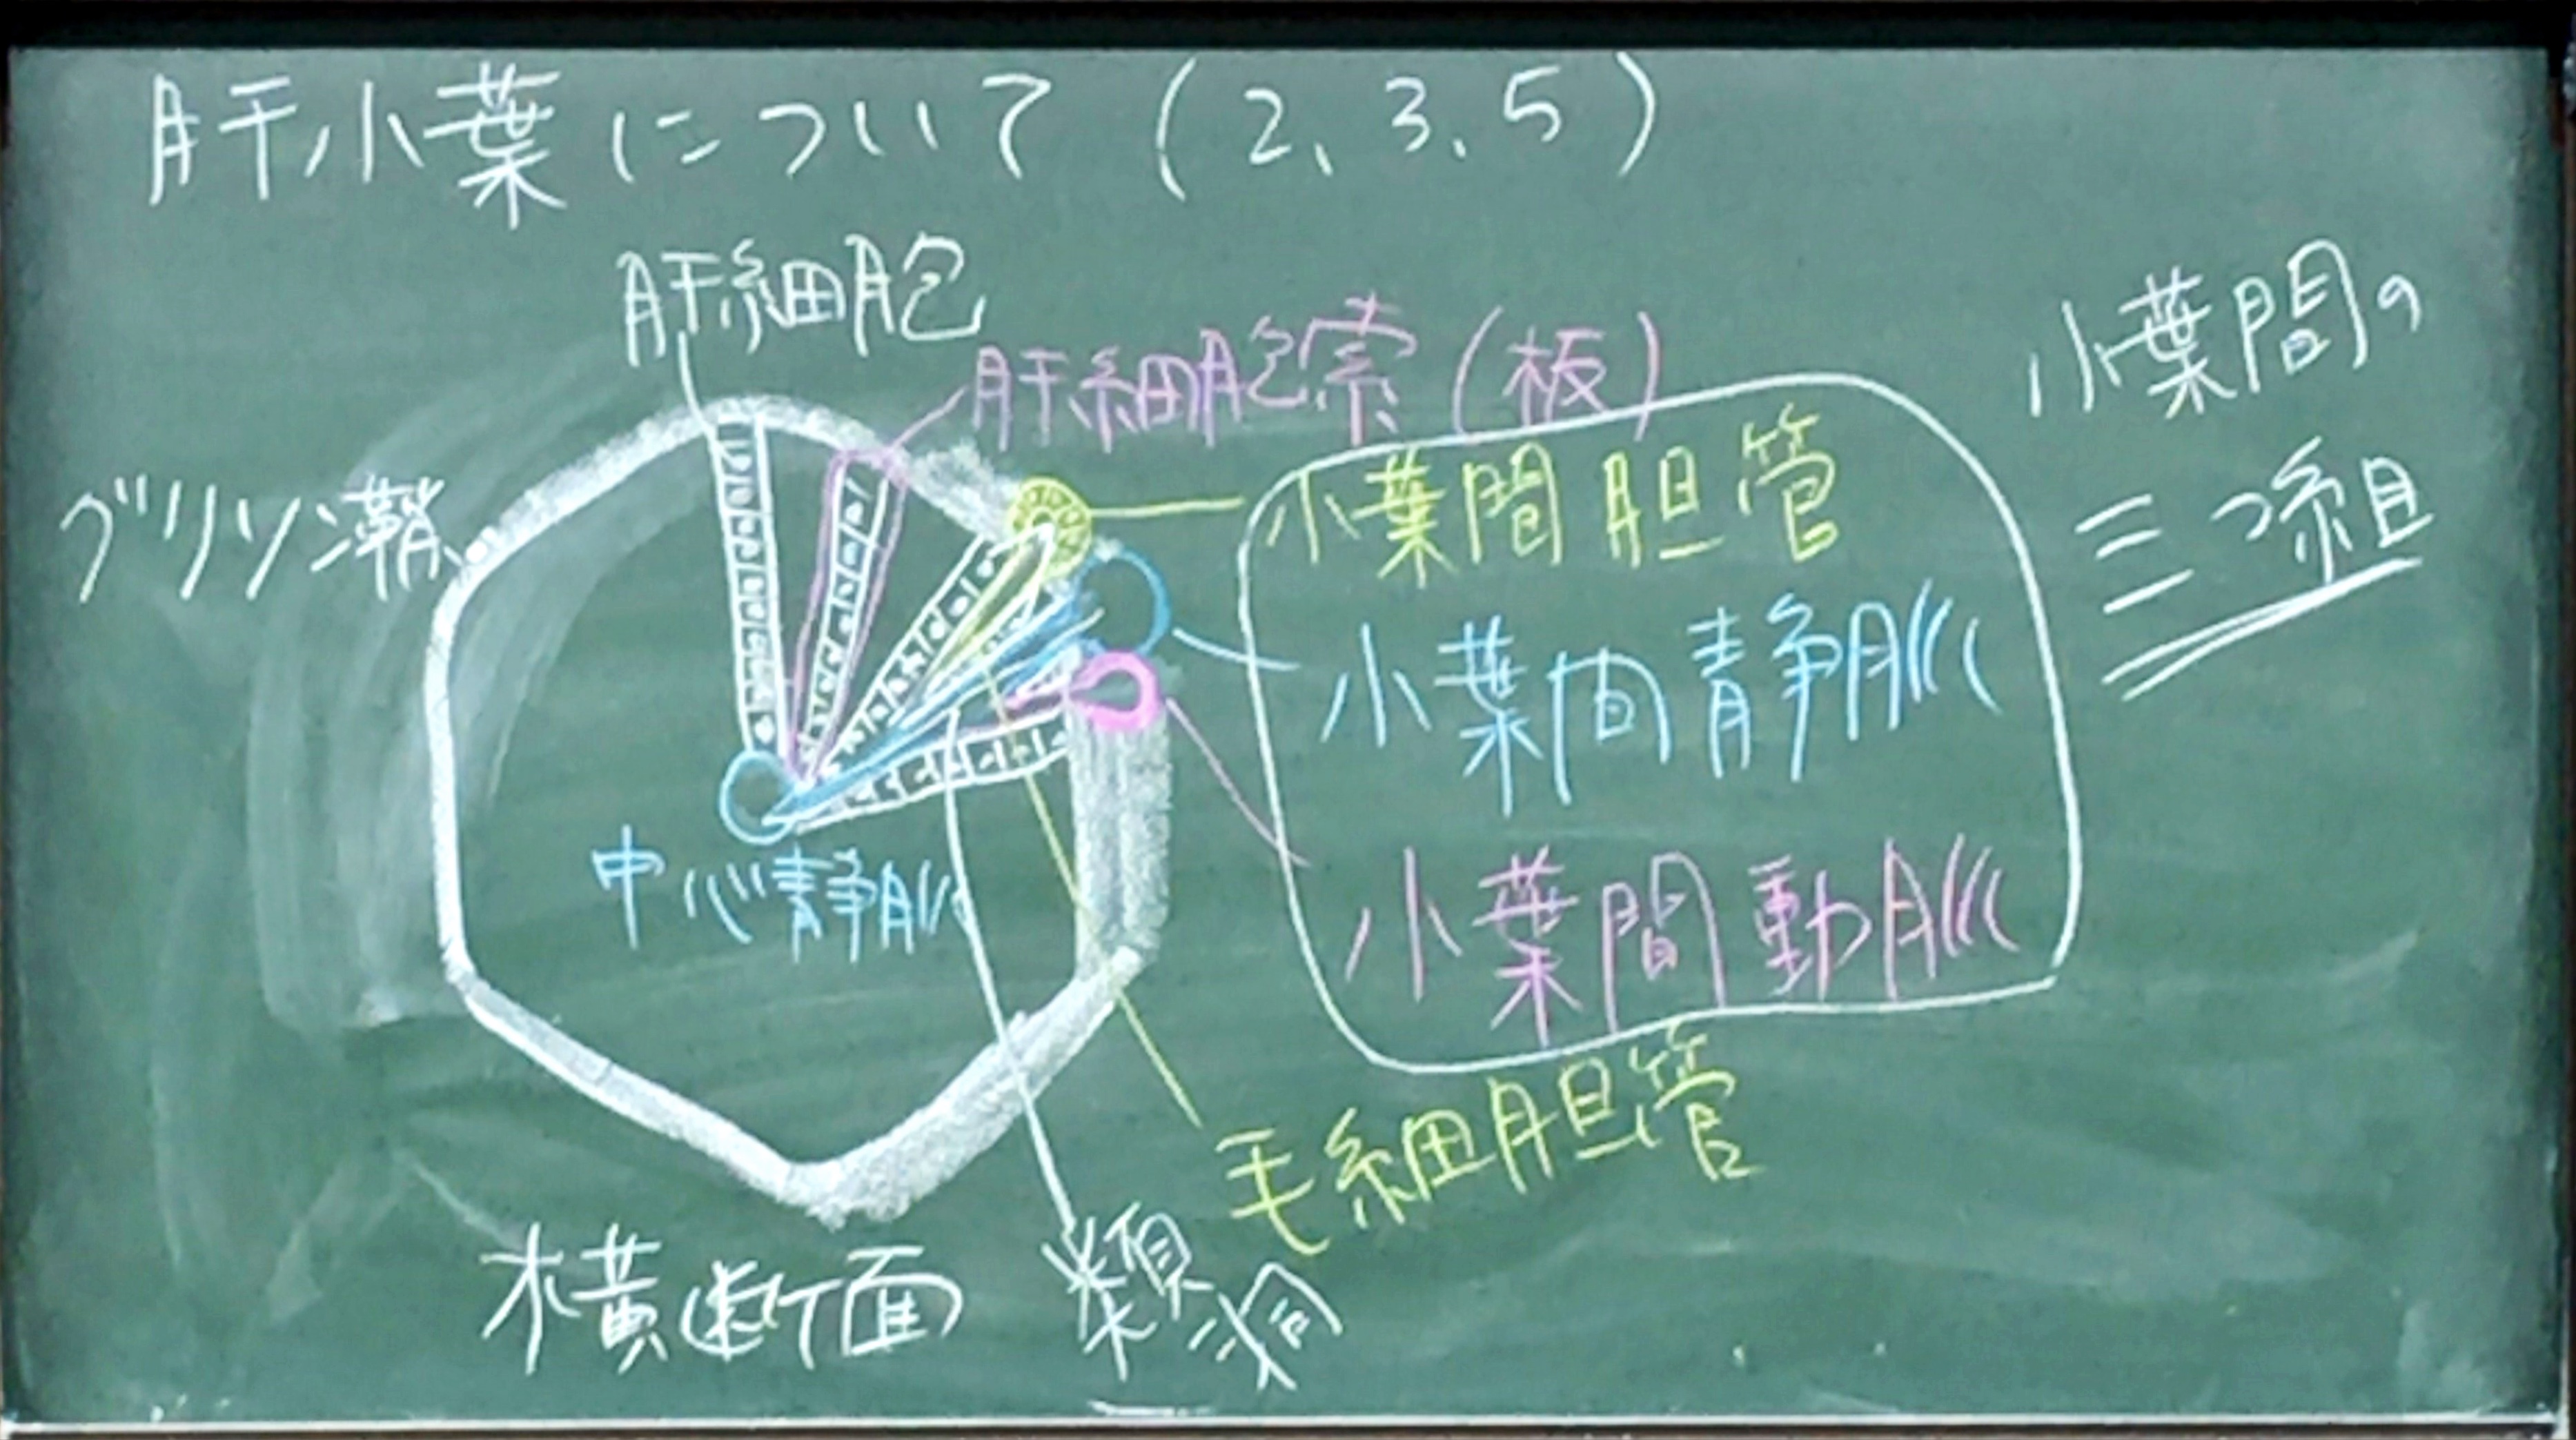 肝小葉について (2、3、5)
肝細胞
肝細胞索(板)
グリソン鞘
小葉間胆管
小葉間静脈
小葉間動脈
小葉間の
三つ組
中心静脈
毛細胆管
横断面
類洞